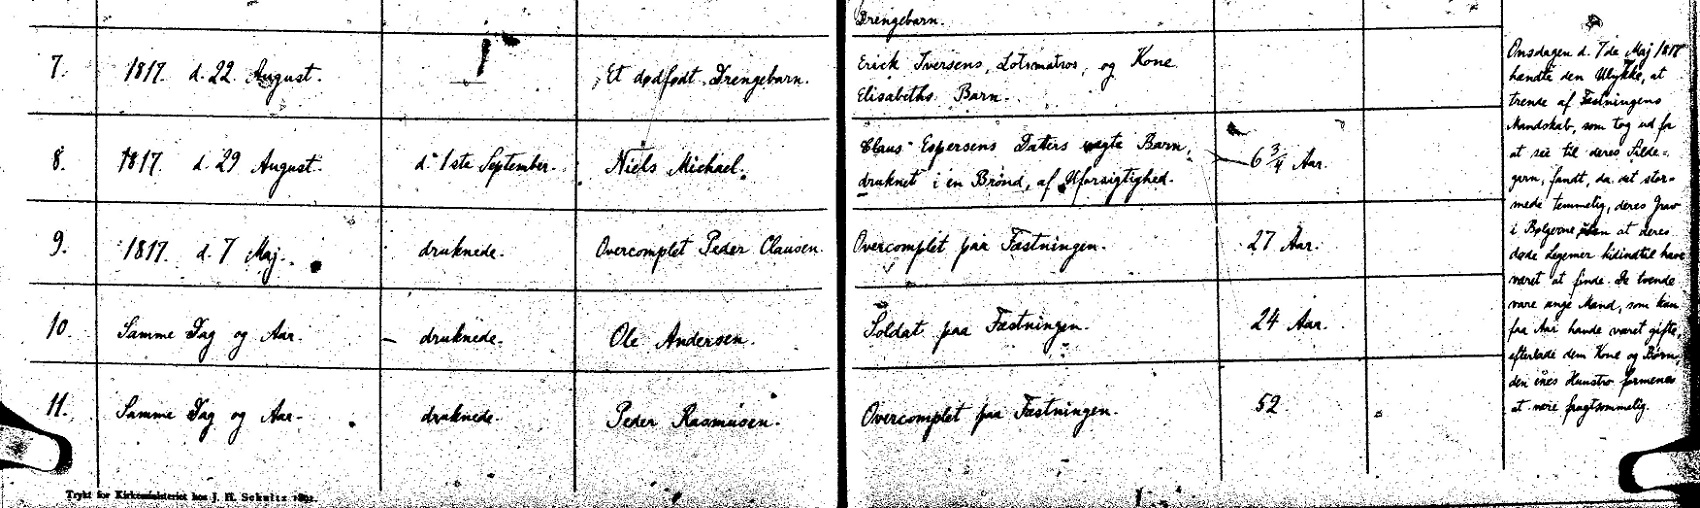 Drengebarn.
7. 1817. d. 22 August. Et dødfødt Drengebarn. Erick Iversens, Lotsmatros, og Kone
Elisabeths Barn.
8. 1817. d. 29 August. d. 1ste September. Niels Michael. Claus Espersens Datters uægte Barn,
druknet i en Brønd, af Uforsigtighed. 6 3/4 Aar.
9. 1817. d. 7 Maj. druknede. Overcomplet Peder Clausen. Overcomplet paa Fæstningen. 27 Aar.
10. Samme Dag og Aar. druknede. Ole Andersen. Soldat paa Fæstningen. 24 Aar.
11. Samme Dag og Aar. druknede. Peder Rasmusen. Overcomplet paa Fæstningen. 52
Onsdagen d. 7de Maj 1817
hændte den Ulykke, at
trende af Fæstningens
Mandskab, som tog ud for
at see til deres Silde-
garn, fandt, da det stor-
mede temmelig, deres Grav
i Bølgerne, uden at deres
døde Legemer hidindtil have
været at finde. De tvende
vare unge Mænd, som kun
faa Aar havde været gifte,
efterlade dem Kone og Børn,
den enes Hustro formenes
at være frugtsommelig.
Trykt for Kirkeministeriet hos J. H. Schultz